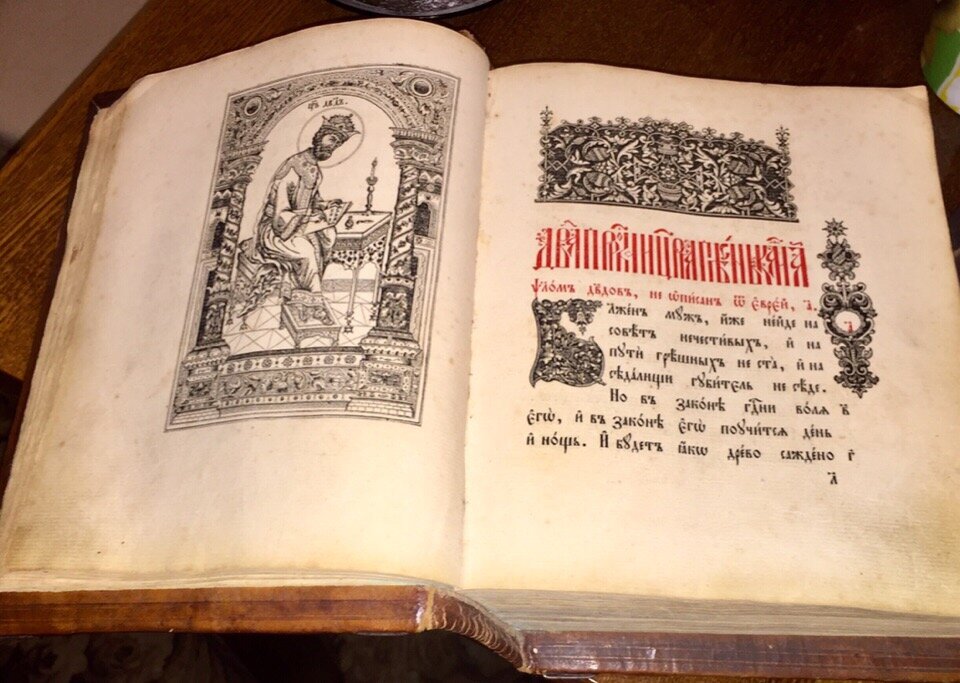 цр҃ь дв҃дъ.
ѱло́мъ дв҃довъ, не ѡ҆пи́санъ ѿ є҆врє́й, а҃.
Бл҃же́нъ мꙋ́жъ, и҆́же не и҆́де на
совѣ́тъ нечести́выхъ, и҆ на
пꙋтѝ грѣ́шныхъ не ста̀, и҆ на
сѣда́лищи гꙋби́тель не сѣ́де.
Но въ зако́нѣ гд҇ни во́лѧ
є҆гѡ̀, и҆ въ зако́нѣ є҆гѡ̀ поꙋчи́тсѧ де́нь
и҆ но́щь. И҆ бꙋ́детъ ꙗ҆́кѡ дре́во сажде́но
а҃